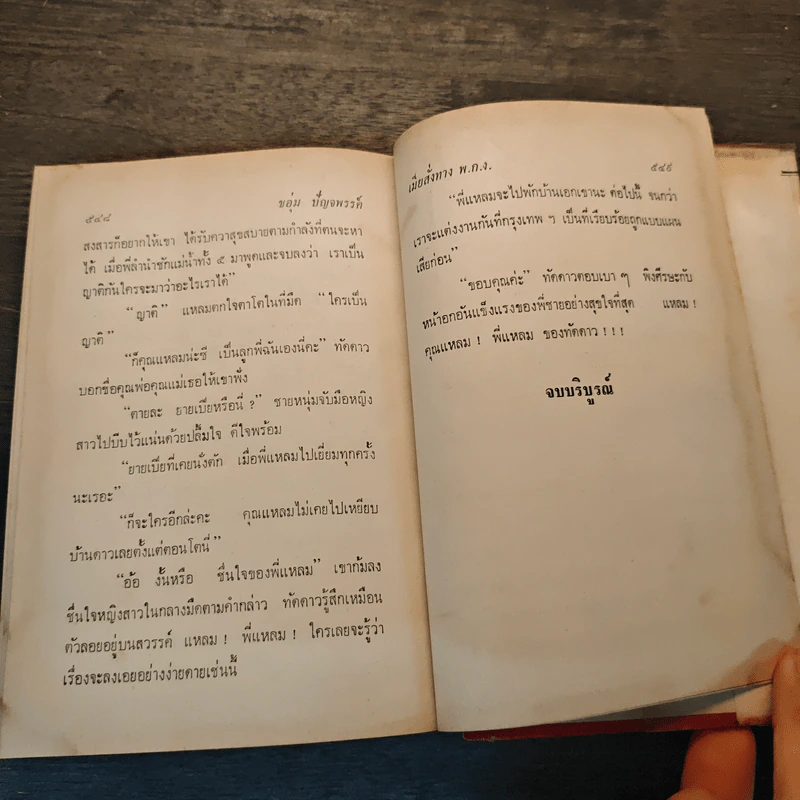 ๕๔๘
ชอุ่ม ปัญจพรรค์
สงสารก็อยากให้เขา ได้รับความสุขสบายตามกำลังที่ตนจะหา
ได้ เมื่อพี่ลำนำชักแม่น้ำทั้ง ๕ มาพูดและจบลงว่า เราเป็น
ญาติกันใครจะมาว่าอะไรเราได้”
“ญาติ” แหลมตกใจตาโตในที่มืด “ใครเป็น
ญาติ”
“ก็คุณแหลมน่ะซี เป็นลูกพี่ฉันเองนี่คะ” ทัดดาว
บอกชื่อคุณพ่อคุณแม่เธอให้เขาฟัง
“ตายละ ยายเบียหรือนี่ ?” ชายหนุ่มจับมือหญิง
สาวไปบีบไว้แน่นด้วยปลื้มใจ ดีใจพร้อม
“ยายเบียที่เคยนั่งตัก เมื่อพี่แหลมไปเยี่ยมทุกครั้ง
นะเรอะ”
“ก็จะใครอีกล่ะคะ คุณแหลมไม่เคยไปเหยียบ
บ้านดาวเลยตั้งแต่ตอนโตนี่”
“อ้อ งั้นหรือ ชื่นใจของพี่แหลม” เขาก้มลง
ชื่นใจหญิงสาวในกลางมืดตามคำกล่าว ทัดดาวรู้สึกเหมือน
ตัวลอยอยู่บนสวรรค์ แหลม ! พี่แหลม ! ใครเลยจะรู้ว่า
เรื่องจะลงเอยอย่างง่ายดายเช่นนี้
เมียสั่งทาง พ.ก.ง.
๕๔๙
“พี่แหลมจะไปพักบ้านเอกเขานะ ต่อไปนี้ จนกว่า
เราจะแต่งงานกันที่กรุงเทพ ฯ เป็นที่เรียบร้อยถูกแบบแผน
เสียก่อน”
“ขอบคุณค่ะ” ทัดดาวตอบเบา ๆ พิงศีรษะกับ
หน้าอกอันแข็งแรงของพี่ชายอย่างสุขใจที่สุด แหลม !
คุณแหลม ! พี่แหลม ของทัดดาว ! ! !
จบบริบูรณ์